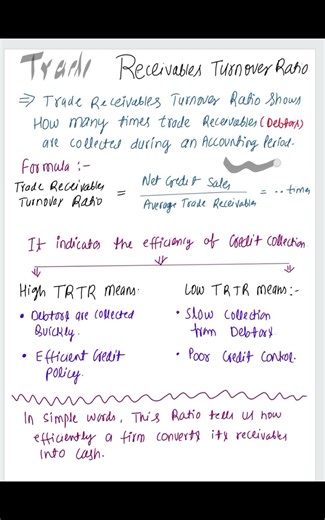 Trade Receivables Turnover Ratio
⇒ Trade Receivables Turnover Ratio shows
How many times trade Receivables (Debtors)
are collected during an Accounting Period.
Formula :-
Trade Receivables Turnover Ratio = Net Credit Sales / Average Trade Receivables = .. times
It indicates the efficiency of Credit collection
High TRTR means:
• Debtors are collected
Quickly.
• Efficient Credit
Policy.
Low TRTR means:-
• Slow Collection
from Debtors
• Poor Credit Control.
In simple words, This Ratio tells us how
efficiently a firm converts its receivables
into cash.